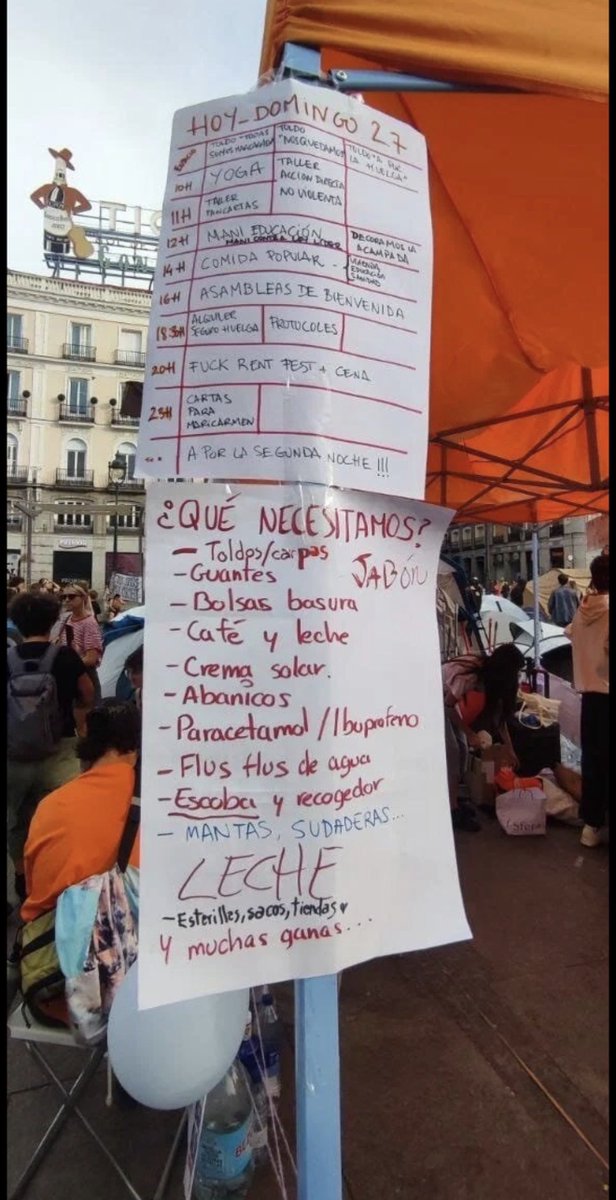 HOY-DOMINGO 27
TOLDO "TODAS
SOMOS MARICARMEN
TOLDO
"NOS QUEDAMOS"
TOLDO "A POR
LA HUELGA"
10H
YOGA
TALLER
ACCION DIRECTA
NO VIOLENTA
11H
TALLER
PANCARTAS
12H
MANI EDUCACIÓN
DECORAMOS LA
ACAMPADA
14H
COMIDA POPULAR -
VIVIENDA
EDUCACIÓN
SANIDAD
16H
ASAMBLEAS DE BIENVENIDA
18:30H
ALQUILER
SEGURO HUELGA
PROTOCOLES
20H
FUCK RENT FEST + CENA
23H
CARTAS
PARA
MARICARMEN
A POR LA SEGUNDA NOCHE !!!
¿QUÉ NECESITAMOS?
- Toldos/carpas
JABÓN
- Guantes
- Bolsas basura
- Café y leche
- Crema solar.
- Abanicos
- Paracetamol / Ibuprofeno
- Flus flus de agua
- Escoba y recogedor
- MANTAS, SUDADERAS...
LECHE
- Esterilles, sacos, tiendas
Y muchas ganas...
TIO